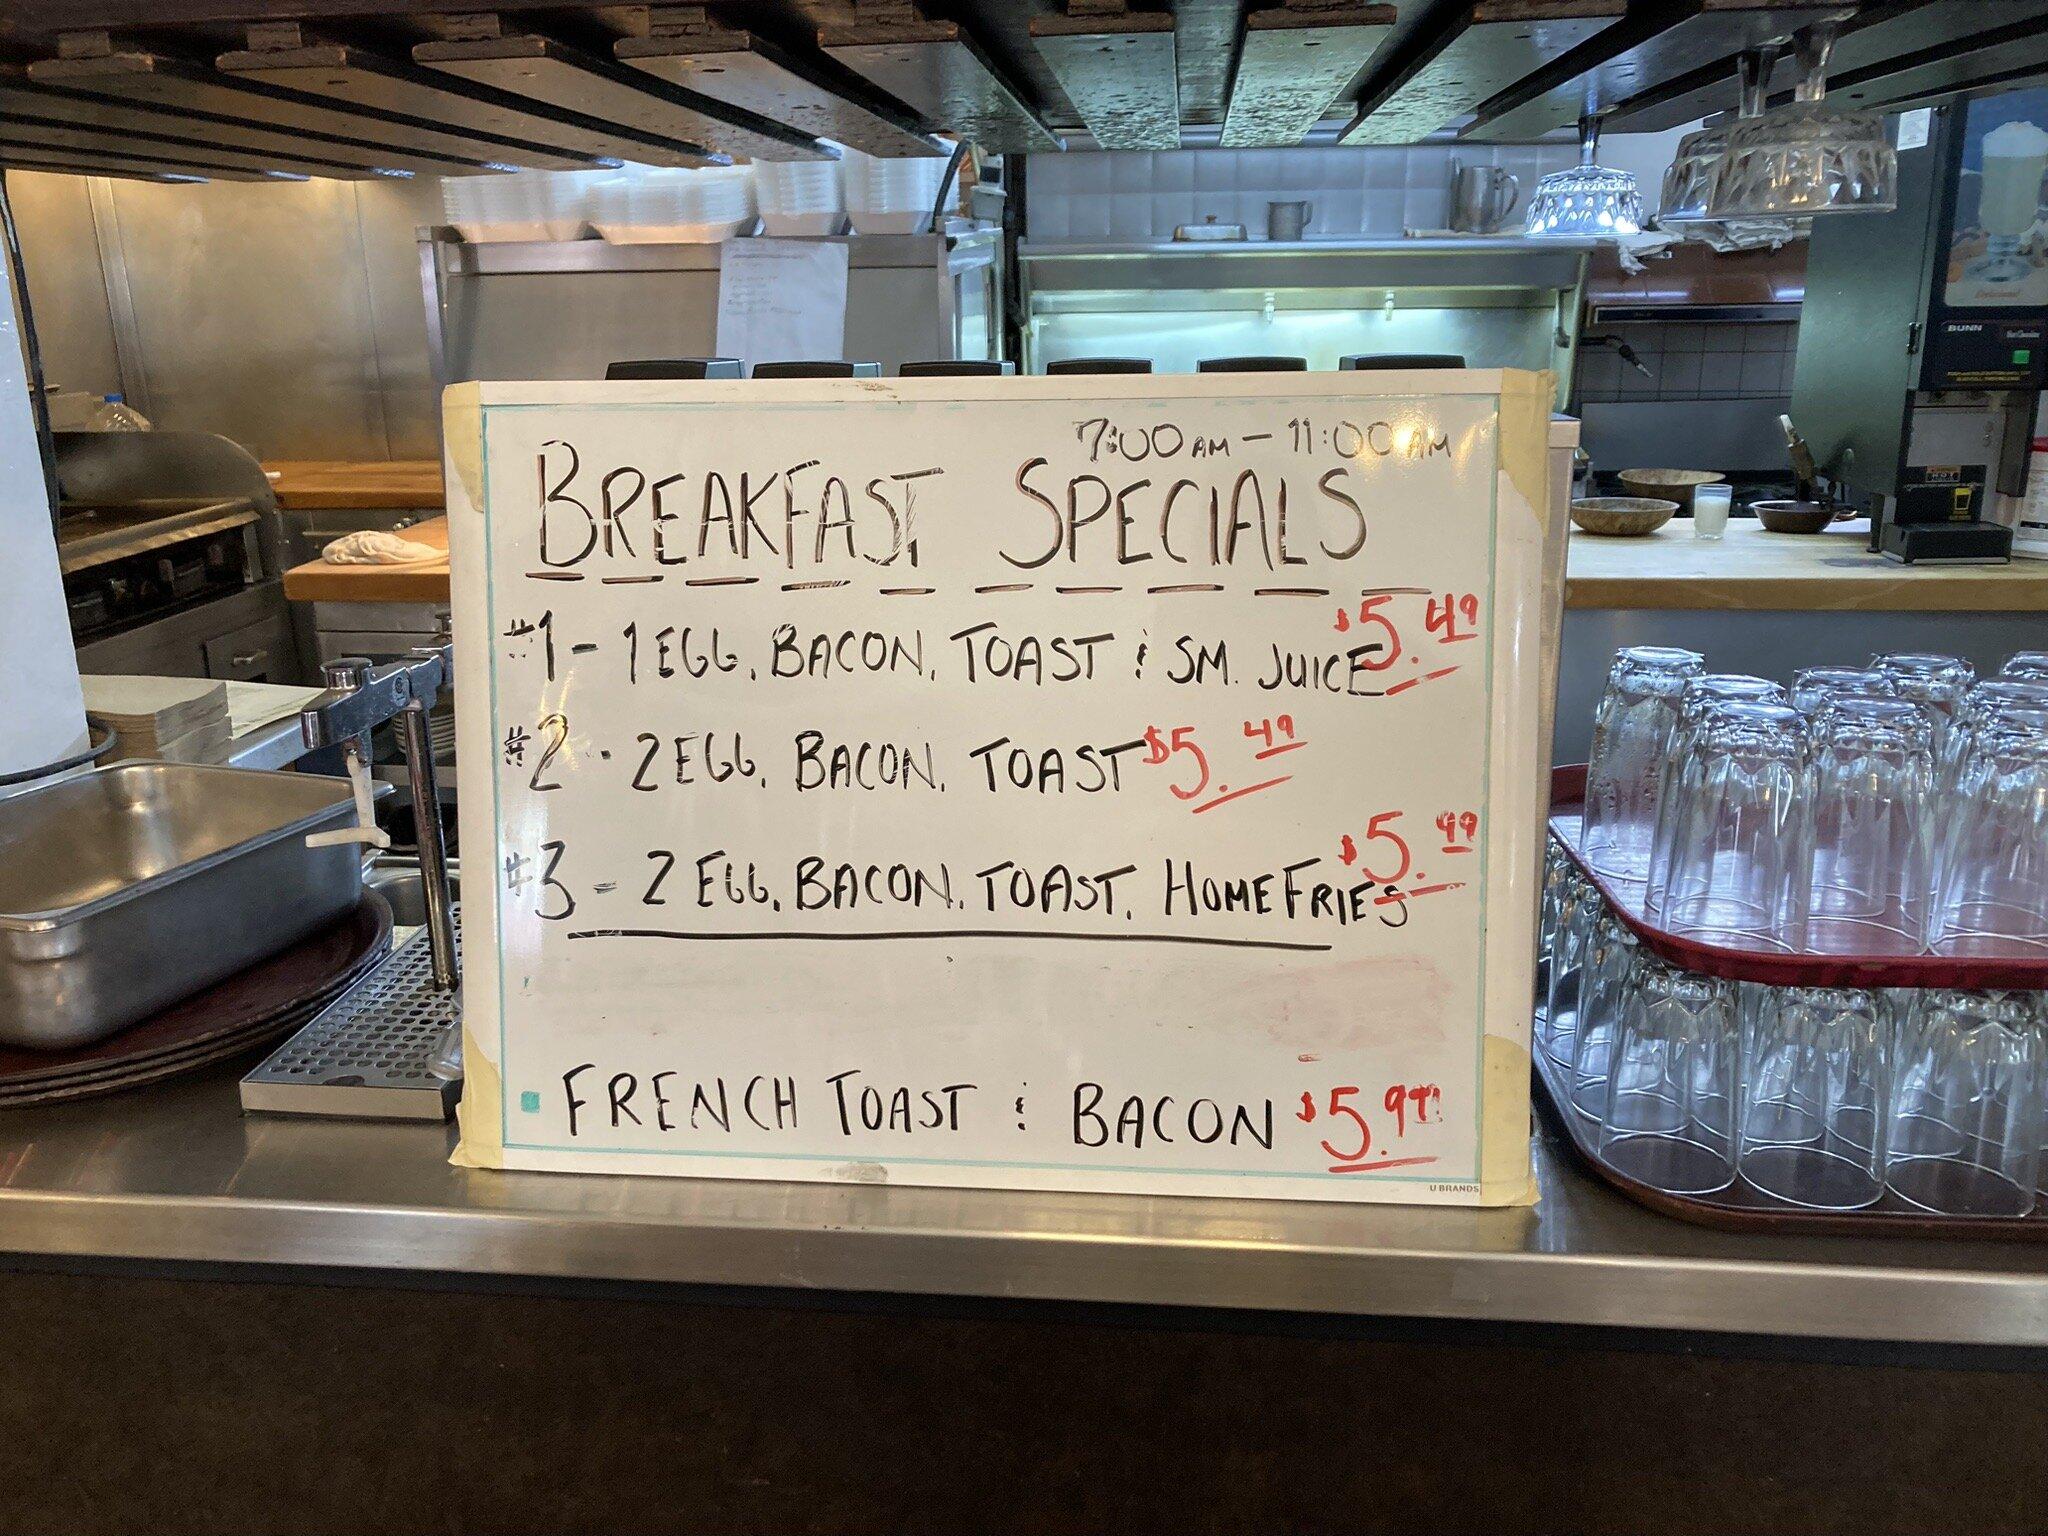 7:00 AM - 11:00 AM
BREAKFAST SPECIALS
#1 - 1 EGG, BACON, TOAST & SM. JUICE $5.49
#2 - 2 EGG, BACON, TOAST $5.49
#3 - 2 EGG, BACON, TOAST, HOME FRIES $5.99
FRENCH TOAST & BACON $5.99
U BRANDS
BUNN